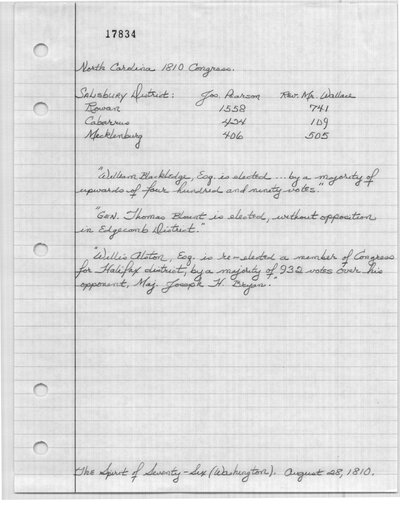 17834
North Carolina 1810 Congress.
Salisbury District: Jos. Pearson Rev. Mr. Wallace
Rowan 1558 741
Cabarrus 424 109
Mecklenburg 406 505
"William Blackledge, Esq. is elected ... by a majority of
upwards of four hundred and ninety votes."
"Gen. Thomas Blount is elected, without opposition
in Edgecomb District."
"Willis Alston, Esq. is re-elected a member of Congress
for Halifax district, by a majority of 932 votes over his
opponent, Maj. Joseph H. Bryan."
The Spirit of Seventy-Six (Washington). August 28, 1810.